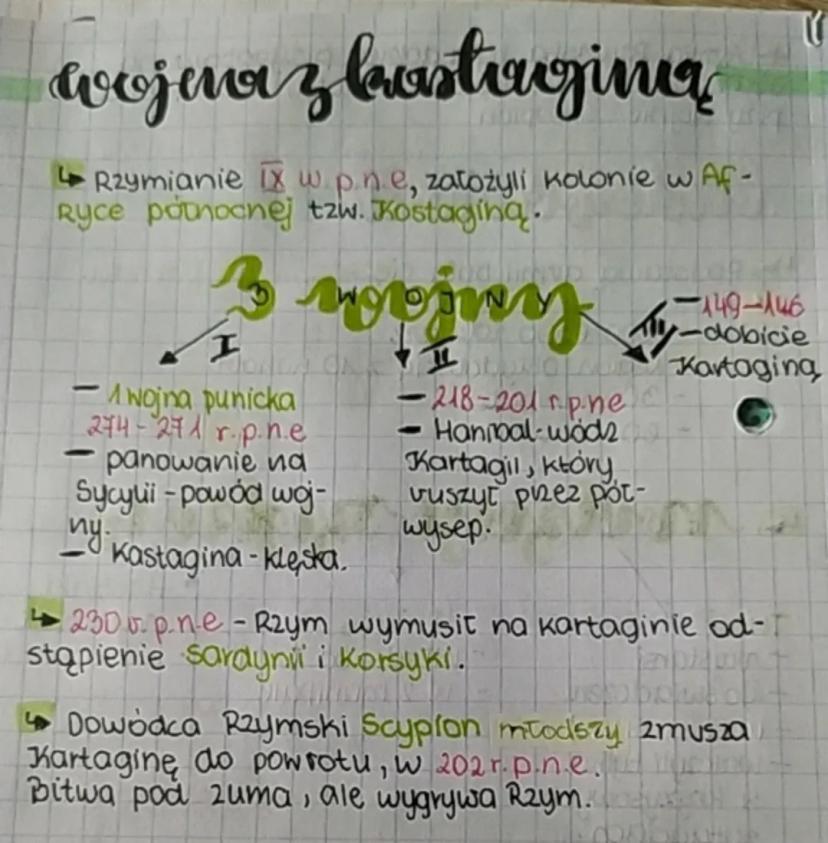 wojna z kartaginą
↳ Rzymianie IX w p.n.e, założyli kolonie w Af-
ryce północnej tzw. Kostaginą.
3 wojny
3 WOJNY
I
– 1 wojna punicka
274-271 r.p.n.e
– panowanie na
Sycylii - powód woj-
ny.
– Kastagina - klęska.
II
– 218-201 r.p.ne
– Hannibal-wódz
Kartagil, który
ruszył przez pół-
wysep.
III
– 149-146
– dobicie
Kartaginą
↳ 230 r.p.n.e - Rzym wymusił na kartaginie od-
stąpienie Sardynii i Korsyki.
↳ Dowódca Rzymski Scypion młodszy zmusza
Kartaginę do powrotu, w 202 r.p.n.e.
Bitwa pod zuma, ale wygrywa Rzym.